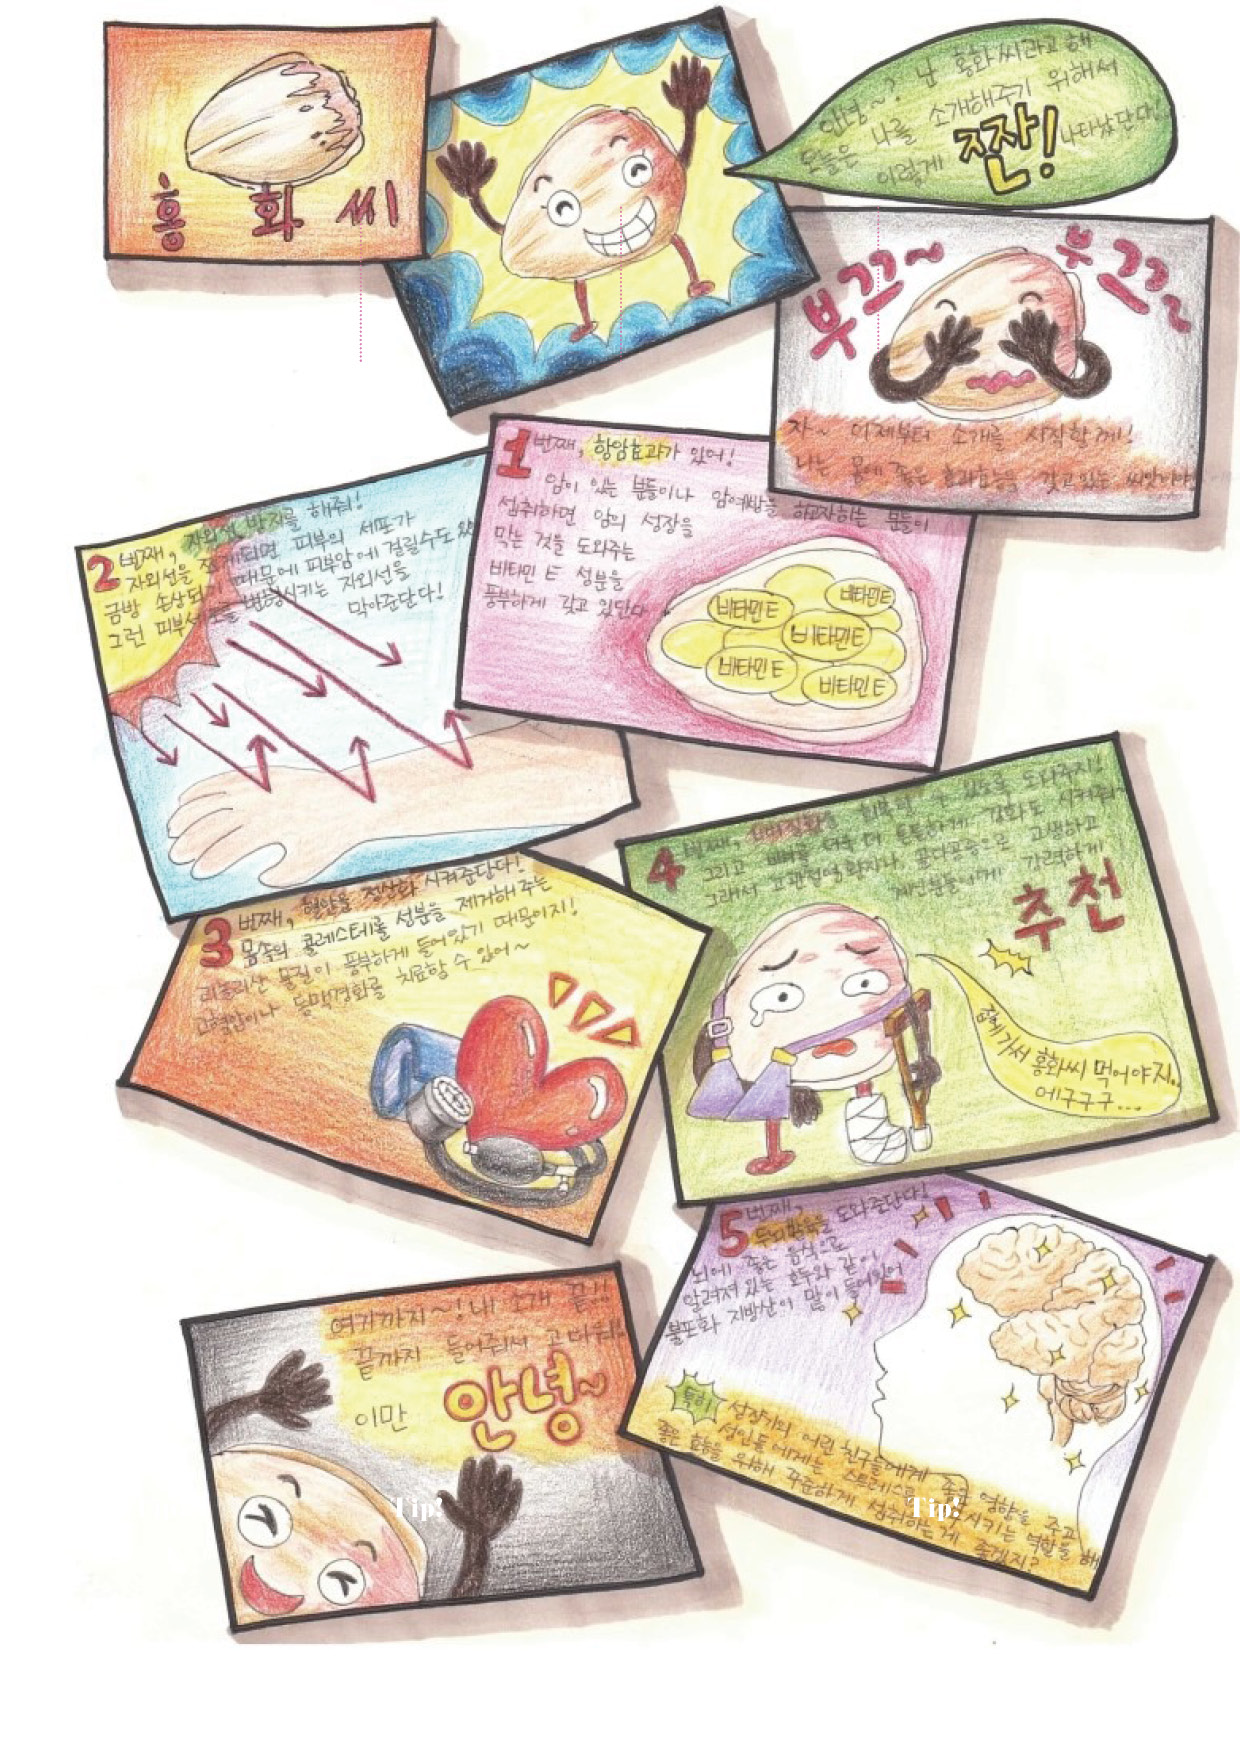 홍화씨
안녕~? 난 홍화씨라고 해
오늘은 나를 소개해주기 위해서
이렇게 짠! 나타났단다!
부끄~ 부끄~
자~ 이제부터 소개를 시작할께!
나는 몸에 좋은 효과효능을 갖고있는 씨앗이야
1번째, 항암효과가 있어!
암이 있는 분들이나 암예방을 하고자하는 분들이
섭취하면 암의 성장을
막는 것을 도와주는
비타민 E 성분을
풍부하게 갖고 있단다
비타민E
비타민E
비타민E
비타민E
비타민E
2번째, 자외선 방지를 해줘!
자외선을 쬐게되면 피부의 세포가
금방 손상되기 때문에 피부암에 걸릴수도 있어
그런 피부세포를 변형시키는 자외선을
막아준단다!
3번째, 혈압을 정상화 시켜준단다!
몸속의 콜레스테롤 성분을 제거해 주는
리놀리산 물질이 풍부하게 들어있기 때문이지!
고혈압이나 동맥경화를 치료할 수 있어~
4번째, 뼈질환을 회복할 수 있도록 도와주지!
그리고 뼈를 더욱 더 튼튼하게 강화도 시켜줘~
그래서 고관절염환자나 골다공증으로 고생하고
계신분들에게 강력하게
추천
가서 홍화씨 먹어야지..
에구구구...
5번째,
두뇌발육을 도와준단다!
뇌에 좋은 음식으로
알려져 있는 호두와 같이
불포화 지방산이 많이 들어있어
특히 성장기의 어린 친구들에게 좋은 영향을 주고
성인들에게는 스트레스를 시키는 역할을 해
좋은 효능을 위해 꾸준하게 섭취하는게 좋겠지?
여기까지~! 내 소개 끝!!
끝까지 들어줘서 고마워!
이만 안녕~
Tip!
Tip!